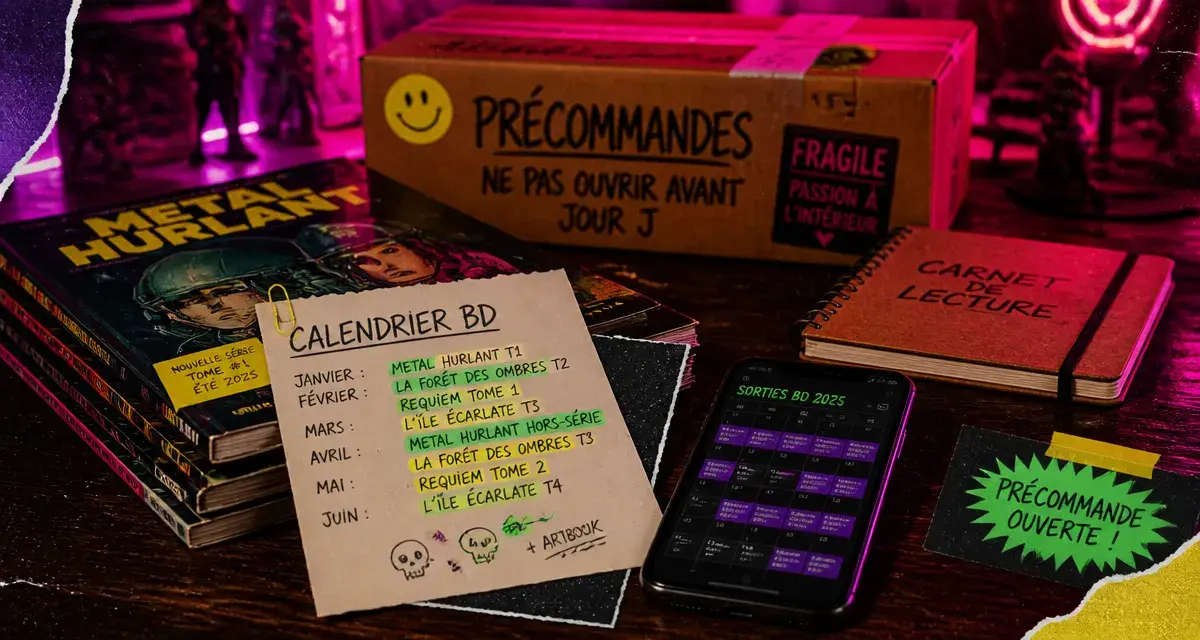 PRÉCOMMANDES
NE PAS OUVRIR AVANT
JOUR J
FRAGILE
PASSION À
L'INTÉRIEUR
METAL
HURLANT
NOUVELLE SÉRIE
TOME #1
ÉTÉ 2025
CALENDRIER BD
JANVIER :
METAL HURLANT T1
LA FORÊT DES OMBRES T2
FÉVRIER :
REQUIEM TOME 1
MARS :
L'ÎLE ÉCARLATE T3
AVRIL :
METAL HURLANT HORS-SÉRIE
LA FORÊT DES OMBRES T3
MAI :
REQUIEM TOME 2
JUIN :
L'ÎLE ÉCARLATE T4
+ ARTBOOK
CARNET
DE
LECTURE
SORTIES BD 2025
PRÉCOMMANDE
OUVERTE !